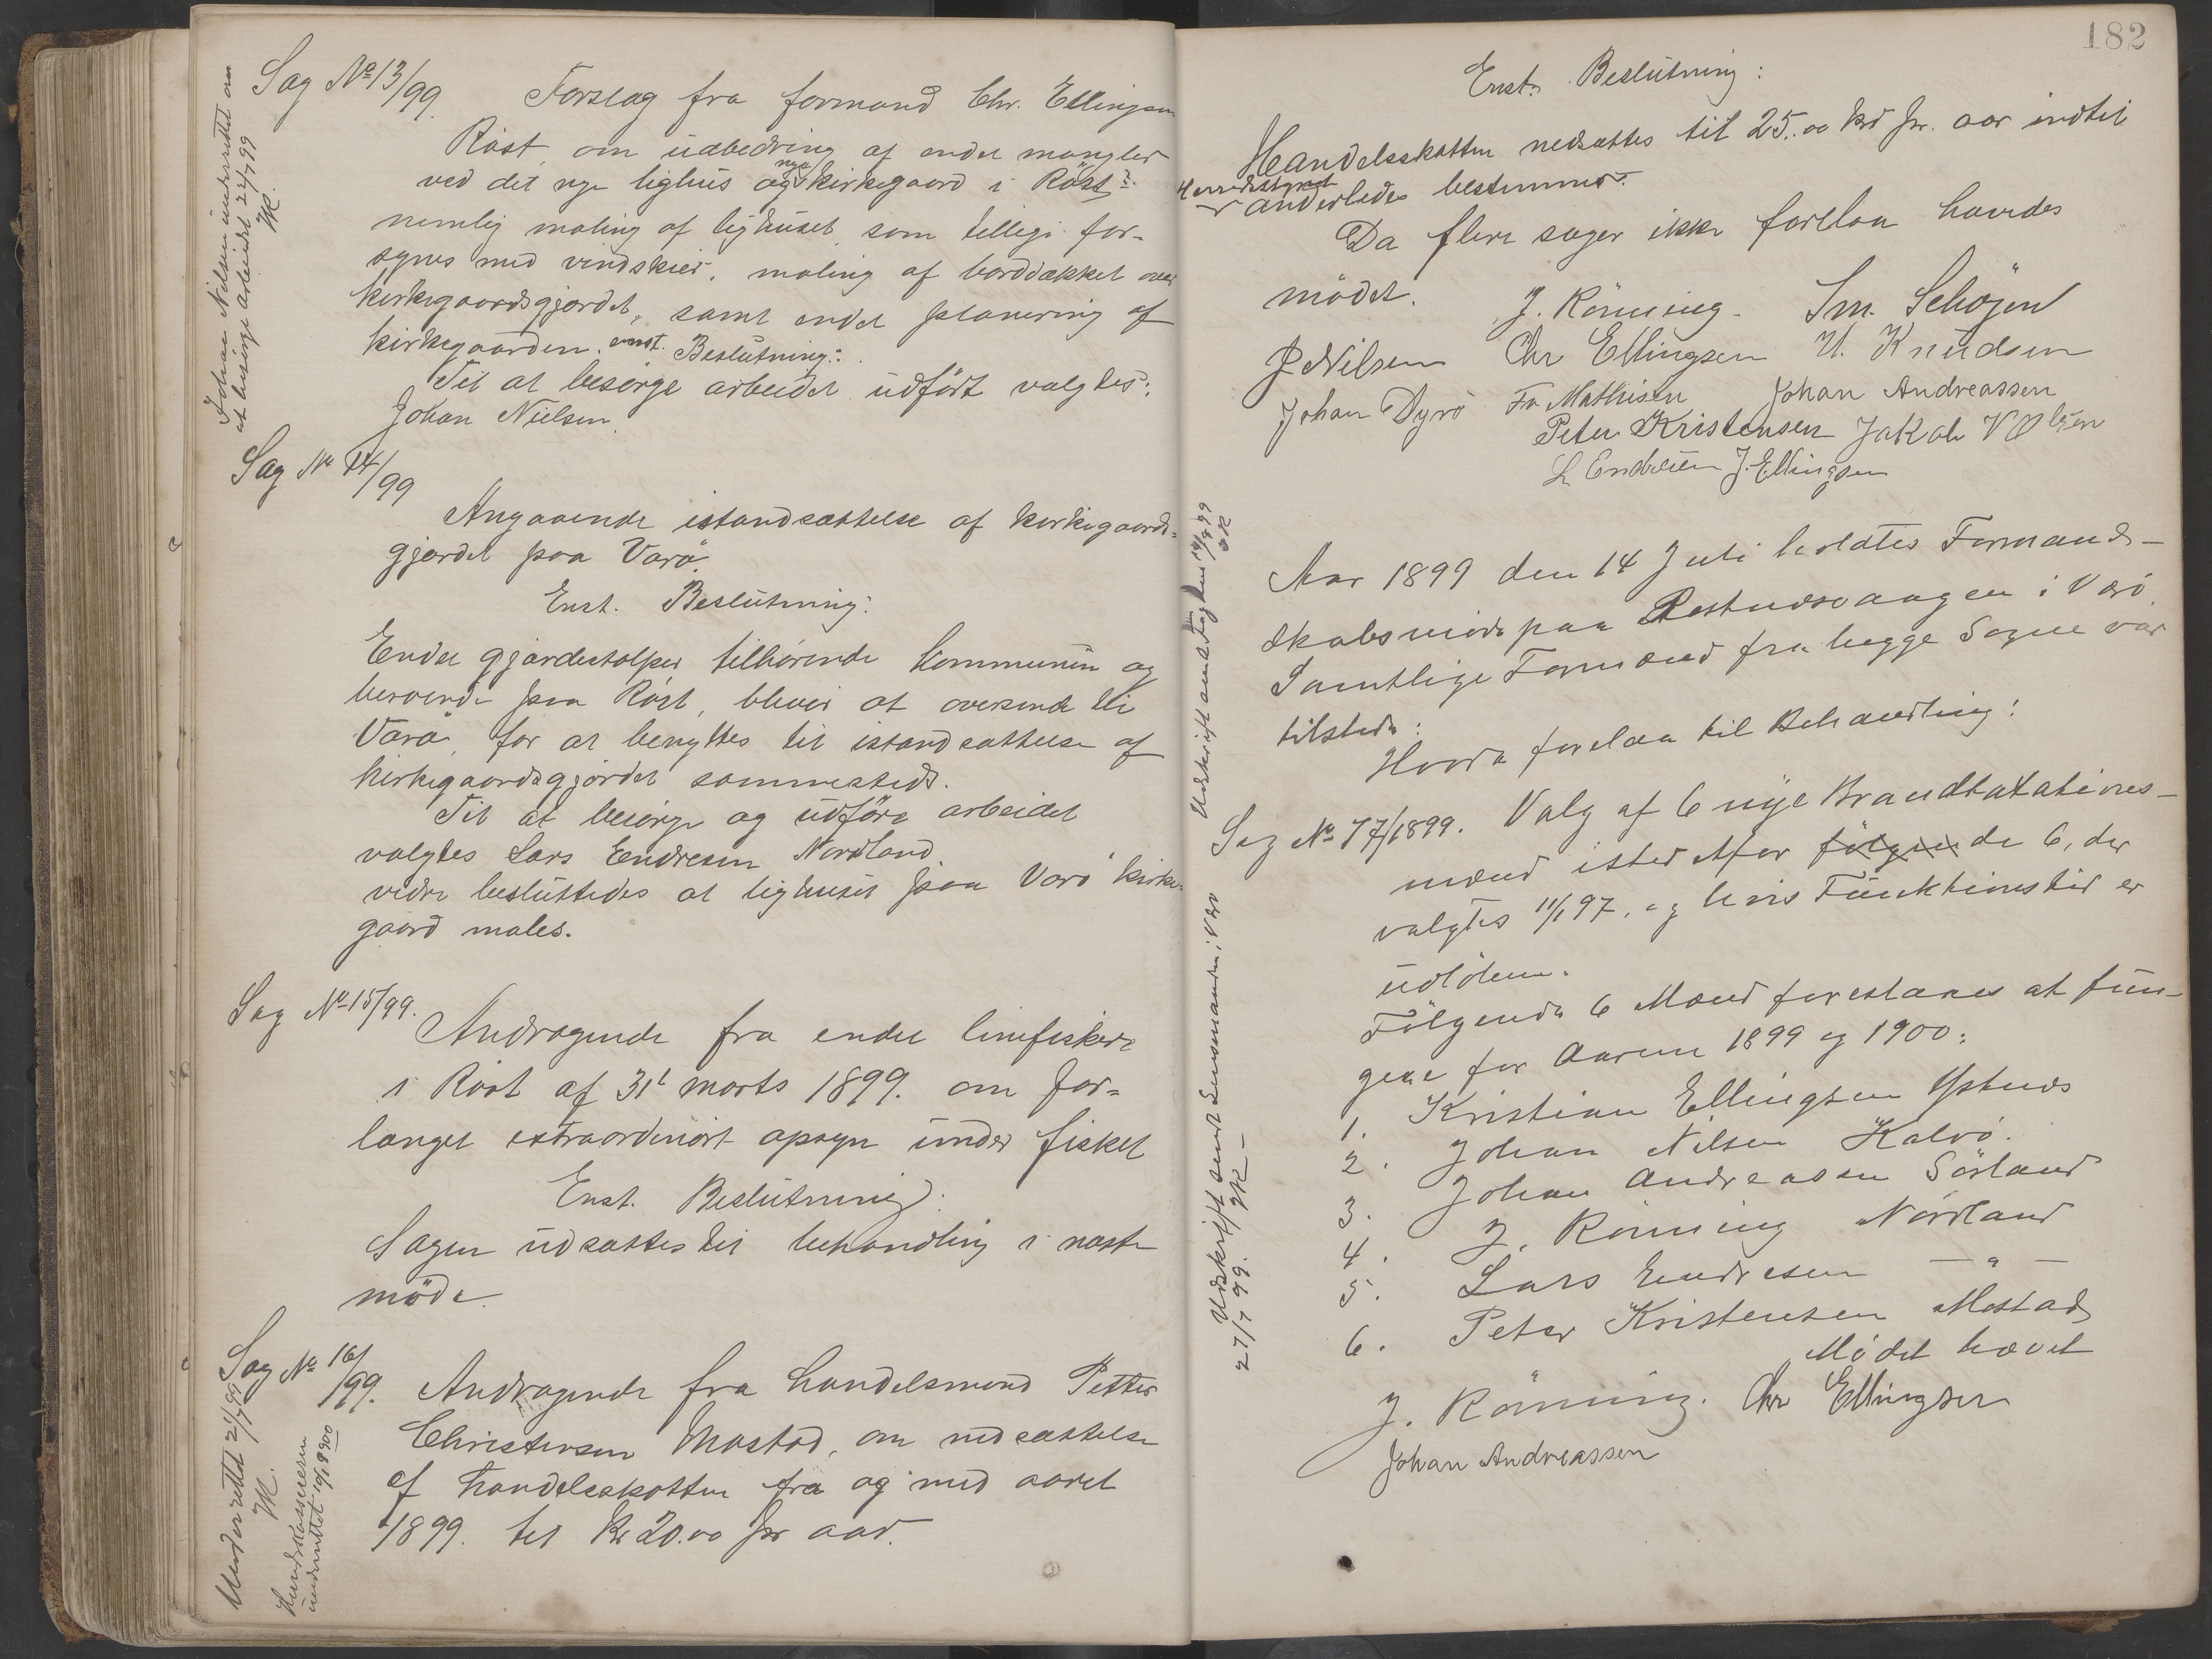 Sag No 13/99. Forslag fra formand Chr. Ellingsen
Röst, om udbedring af endel mangler
ved det nye lighus og nye kirkegaard i Röst:
nemlig maling af lighuset som tillige for-
synes med vindskier, maling af borddækket over
kirkegaardsgjærdet, samt endel planering af
kirkegaarden. enst. Beslutning:
Til at besörge arbeidet udfört valgtes:
Johan Nielsen
Johan Nilsen underrettet om
at besörge arbeidet 22/7 99
JR.
Sag No 14/99
Angaaende istandsættelse af kirkegaards-
gjærdet paa Værö.
Enst. Beslutning:
Endel gjærdestolper tilhörende kommunen og
beroende paa Röst, bliver at oversende til
Værö, for at benyttes til istandsættelse af
kirkegaardsgjærdet sammesteds.
Til at besörge og udföre arbeidet
valgtes Lars Endresen Nordland.
videre besluttedes at lighuset paa Værö kirke-
gaard males.
Sag No 15/99.
Andragende fra endel linefiskere
i Röst af 31t marts 1899. om for-
langet extraordinært opsyn under fisket
Enst. Beslutning:
Sagen udsættes til behandling i næste
möde.
Sag No 16/99. Andragende fra handelsmand Petter
Christensen Mostad, om nedsættelse
af handelsskatten fra og med aaret
1899. til Kr 20.00 pr aar.
Underrettet 21/7 99
JR.
underrettet 10/1 1900
182
Enst. Beslutning:
Handelsskatten nedsættes til 25.00 kr pr. aar indtil
Herredsstyret anderledes bestemmer.
Da flere sager ikke forelaa hævedes
mödet.
J. Rönning. Sm. Schöjen
P Nilsen Chr Ellingsen U. Knudsen
Johan Dyrö Fr Mathisen Johan Andreassen
Peter Kristensen Jakob V Olsen
L Endresen J. Ellingsen
Aar 1899 den 14 Juli holdtes Formand-
skabsmöde paa Restudsvaagen i Værö.
Samtlige Formænd fra begge Sogne var
tilstede:
Hvorda forelaa til Behandling:
Sag No 17/1899. Valg af 6 nye Brandtaxations-
mænd istedetfor fölgende de 6, der
valgtes 11/1 97, og hvis Funktionstid er
udlöben.
Fölgende 6 Mænd foreslaaes at fun-
gere for Aarene 1899 og 1900:
1. Kristian Ellingsen Ystnes
2. Johan Nilsen Kalvö.
3. Johan Andreasen Sörland
4. J. Rönning Nordland
5. Lars Endresen — " —
6. Peter Kristensen Mostad
Mödet hævet
J. Rönning. Chr Ellingsen
Johan Andreassen
Udskrift sendt Lensmanden i Værö
27/7 99. JR —